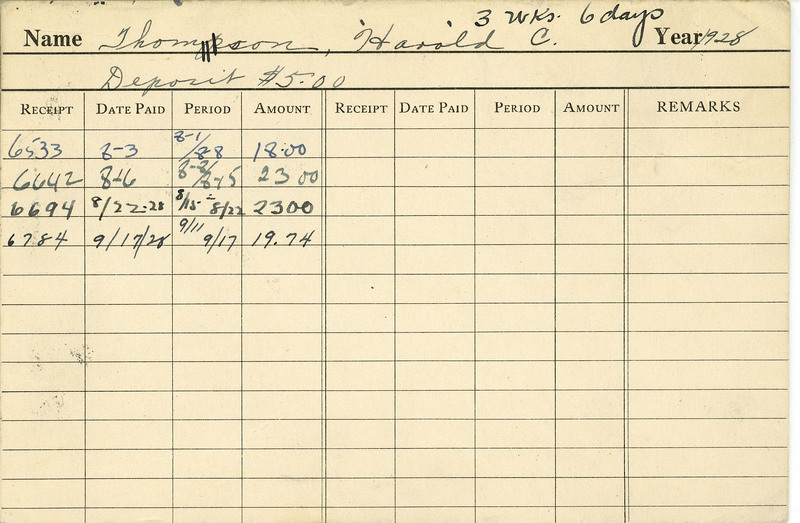 3 wks. 6 days
Name Thompson, Harold C. Year 1928
Deposit $5.00
RECEIPT DATE PAID PERIOD AMOUNT RECEIPT DATE PAID PERIOD AMOUNT REMARKS
6533 8-3 8-1/8-8 18.00
6642 8-6 8-8/8-15 23 00
6694 8/22-28 8/15 - 8/22 2300
6784 9/17/28 9/11 9/17 19.74